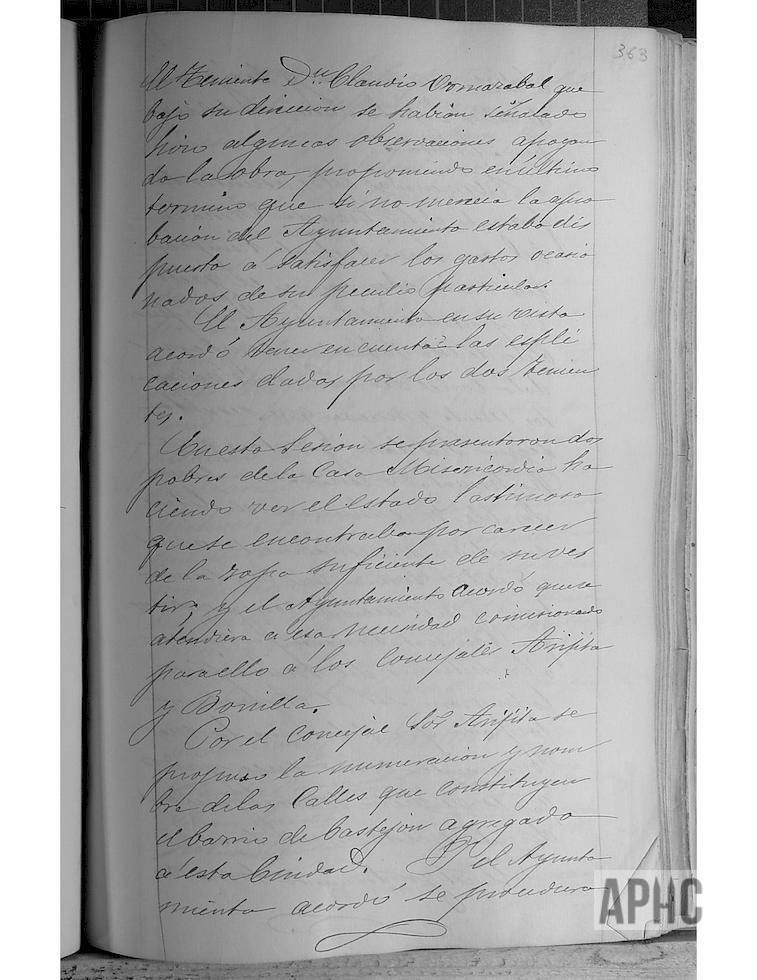 363
El Teniente Dn. Claudio Ormazabal que
bajo su direccion se habian señalado
hizo algunas observaciones apoyan
do la obra, proponiendo en último
termino que si no merecia la apro
bacion del Ayuntamiento estaba dis
puesto á satisfacer los gastos ocasio
nados de su peculio particular.
El Ayuntamiento en su vista
acordó tener en cuenta las espli
caciones dadas por los dos tenien
tes.
En esta Sesion se presentaron dos
pobres de la Casa Misericordia ha
ciendo ver el estado lastimoso
que se encontraban por carecer
de la ropa suficiente de su ves
tir, y el Ayuntamiento acordó que se
atendiera a esa necesidad comisionando
para ello á los Concejales Arijita
y Bonilla.
Por el Concejal Sor. Arijita se
propuso la numeracion y nom
bre de las Calles que constituyen
el barrio de Castejon agregado
a esta Ciudad. Y el Ayunta
miento acordó se procediera
APHC